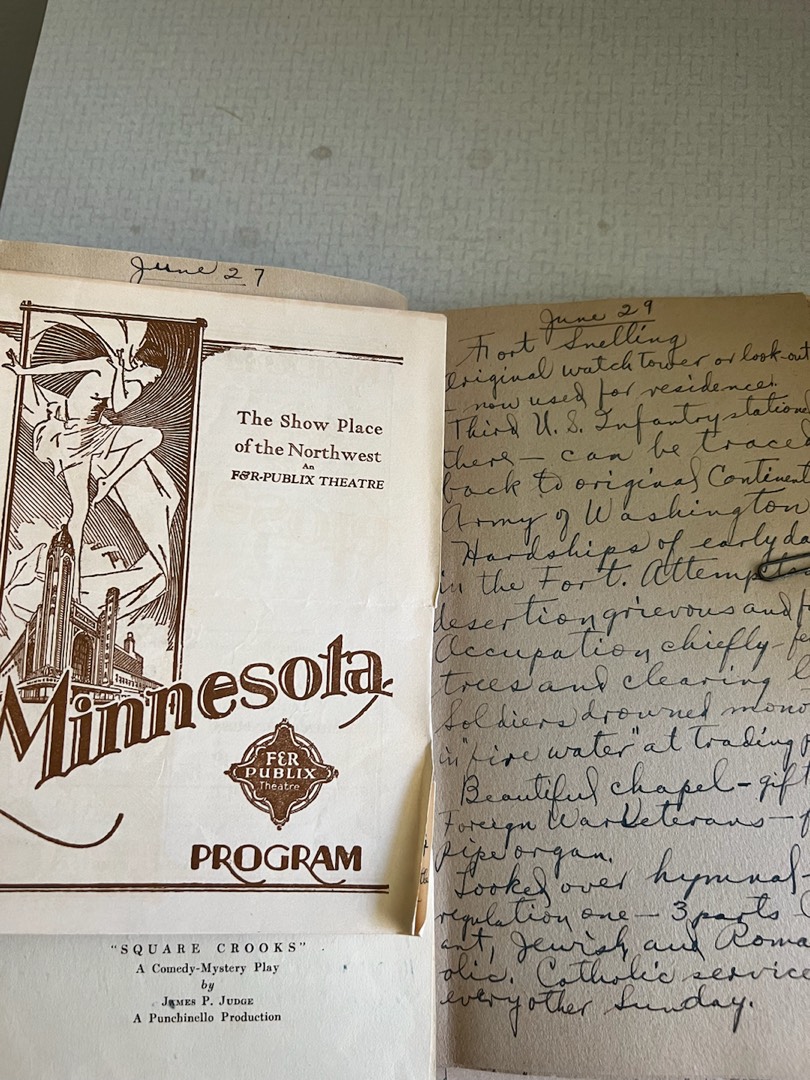 June 27
The Show Place
of the Northwest
An
F&R-PUBLIX THEATRE
Minnesota
F&R
PUBLIX
Theatre
PROGRAM
"SQUARE CROOKS"
A Comedy-Mystery Play
by
JAMES P. JUDGE
A Punchinello Production
June 29
Fort Snelling
Original watch tower or look-out
- now used for residence.
Third U.S. Infantry station
there - can be traced
back to original Continent
Army of Washington
Hardships of early da
in the Fort. Attempt
desertion grievous and
Occupation chiefly - fe
trees and clearing l
Soldiers drowned mono
in "fire water" at trading p
Beautiful chapel - gift
Foreign War Veterans - p
pipe organ.
Looked over hymnal -
regulation one - 3 parts
ant, Jewish, and Roma
olic. Catholic service
every other Sunday.